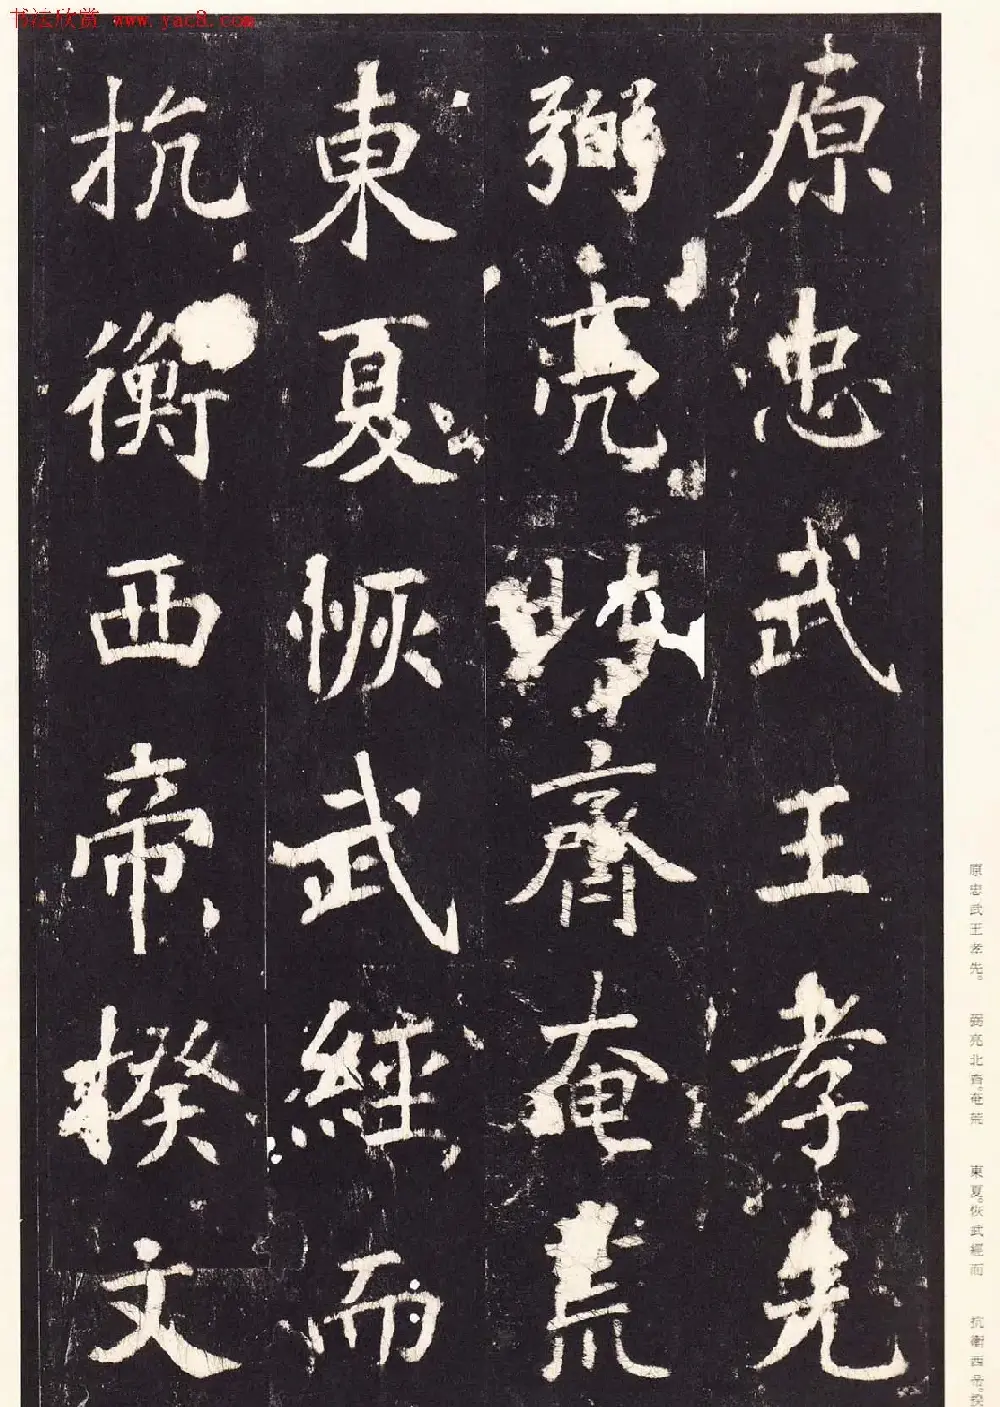 书法欣赏 www.yac8.com
原忠武王孝先
弼亮北齊奄荒
東夏恢武經而
抗衡西帝揆文
原忠武王孝先。 弼亮北齊。奄荒 東夏。恢武經而 抗衡西帝。揆